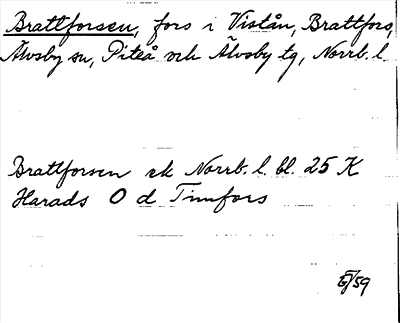 Brattforsen, fors i Vistån, Brattfors,
Älvsby sn, Piteå och Älvsby tg, Norrb. l.
Brattforsen sk Norrb. l. bl. 25 K
Harads O d Timfors
/59